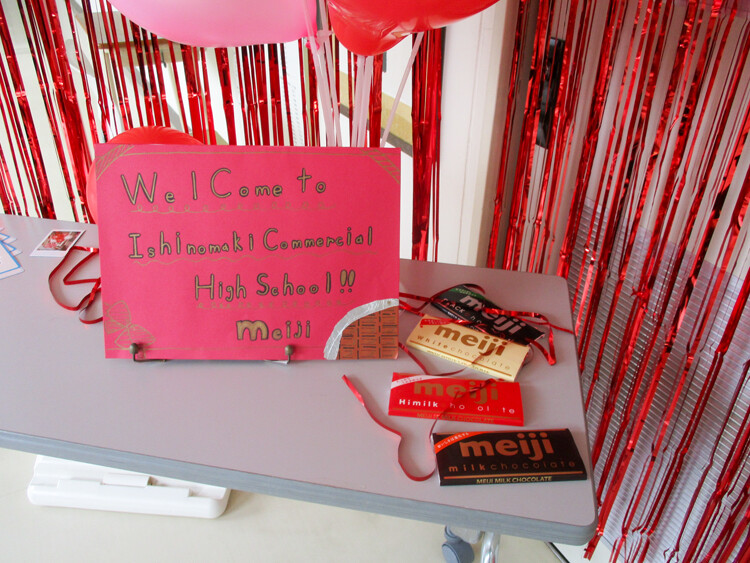 Welcome to
Ishinomaki Commercial
High School!!
meiji
meiji
meiji
whitechocolate
meiji
Himilk ho ol te
meiji
milkchocolate
MEIJI MILK CHOCOLATE